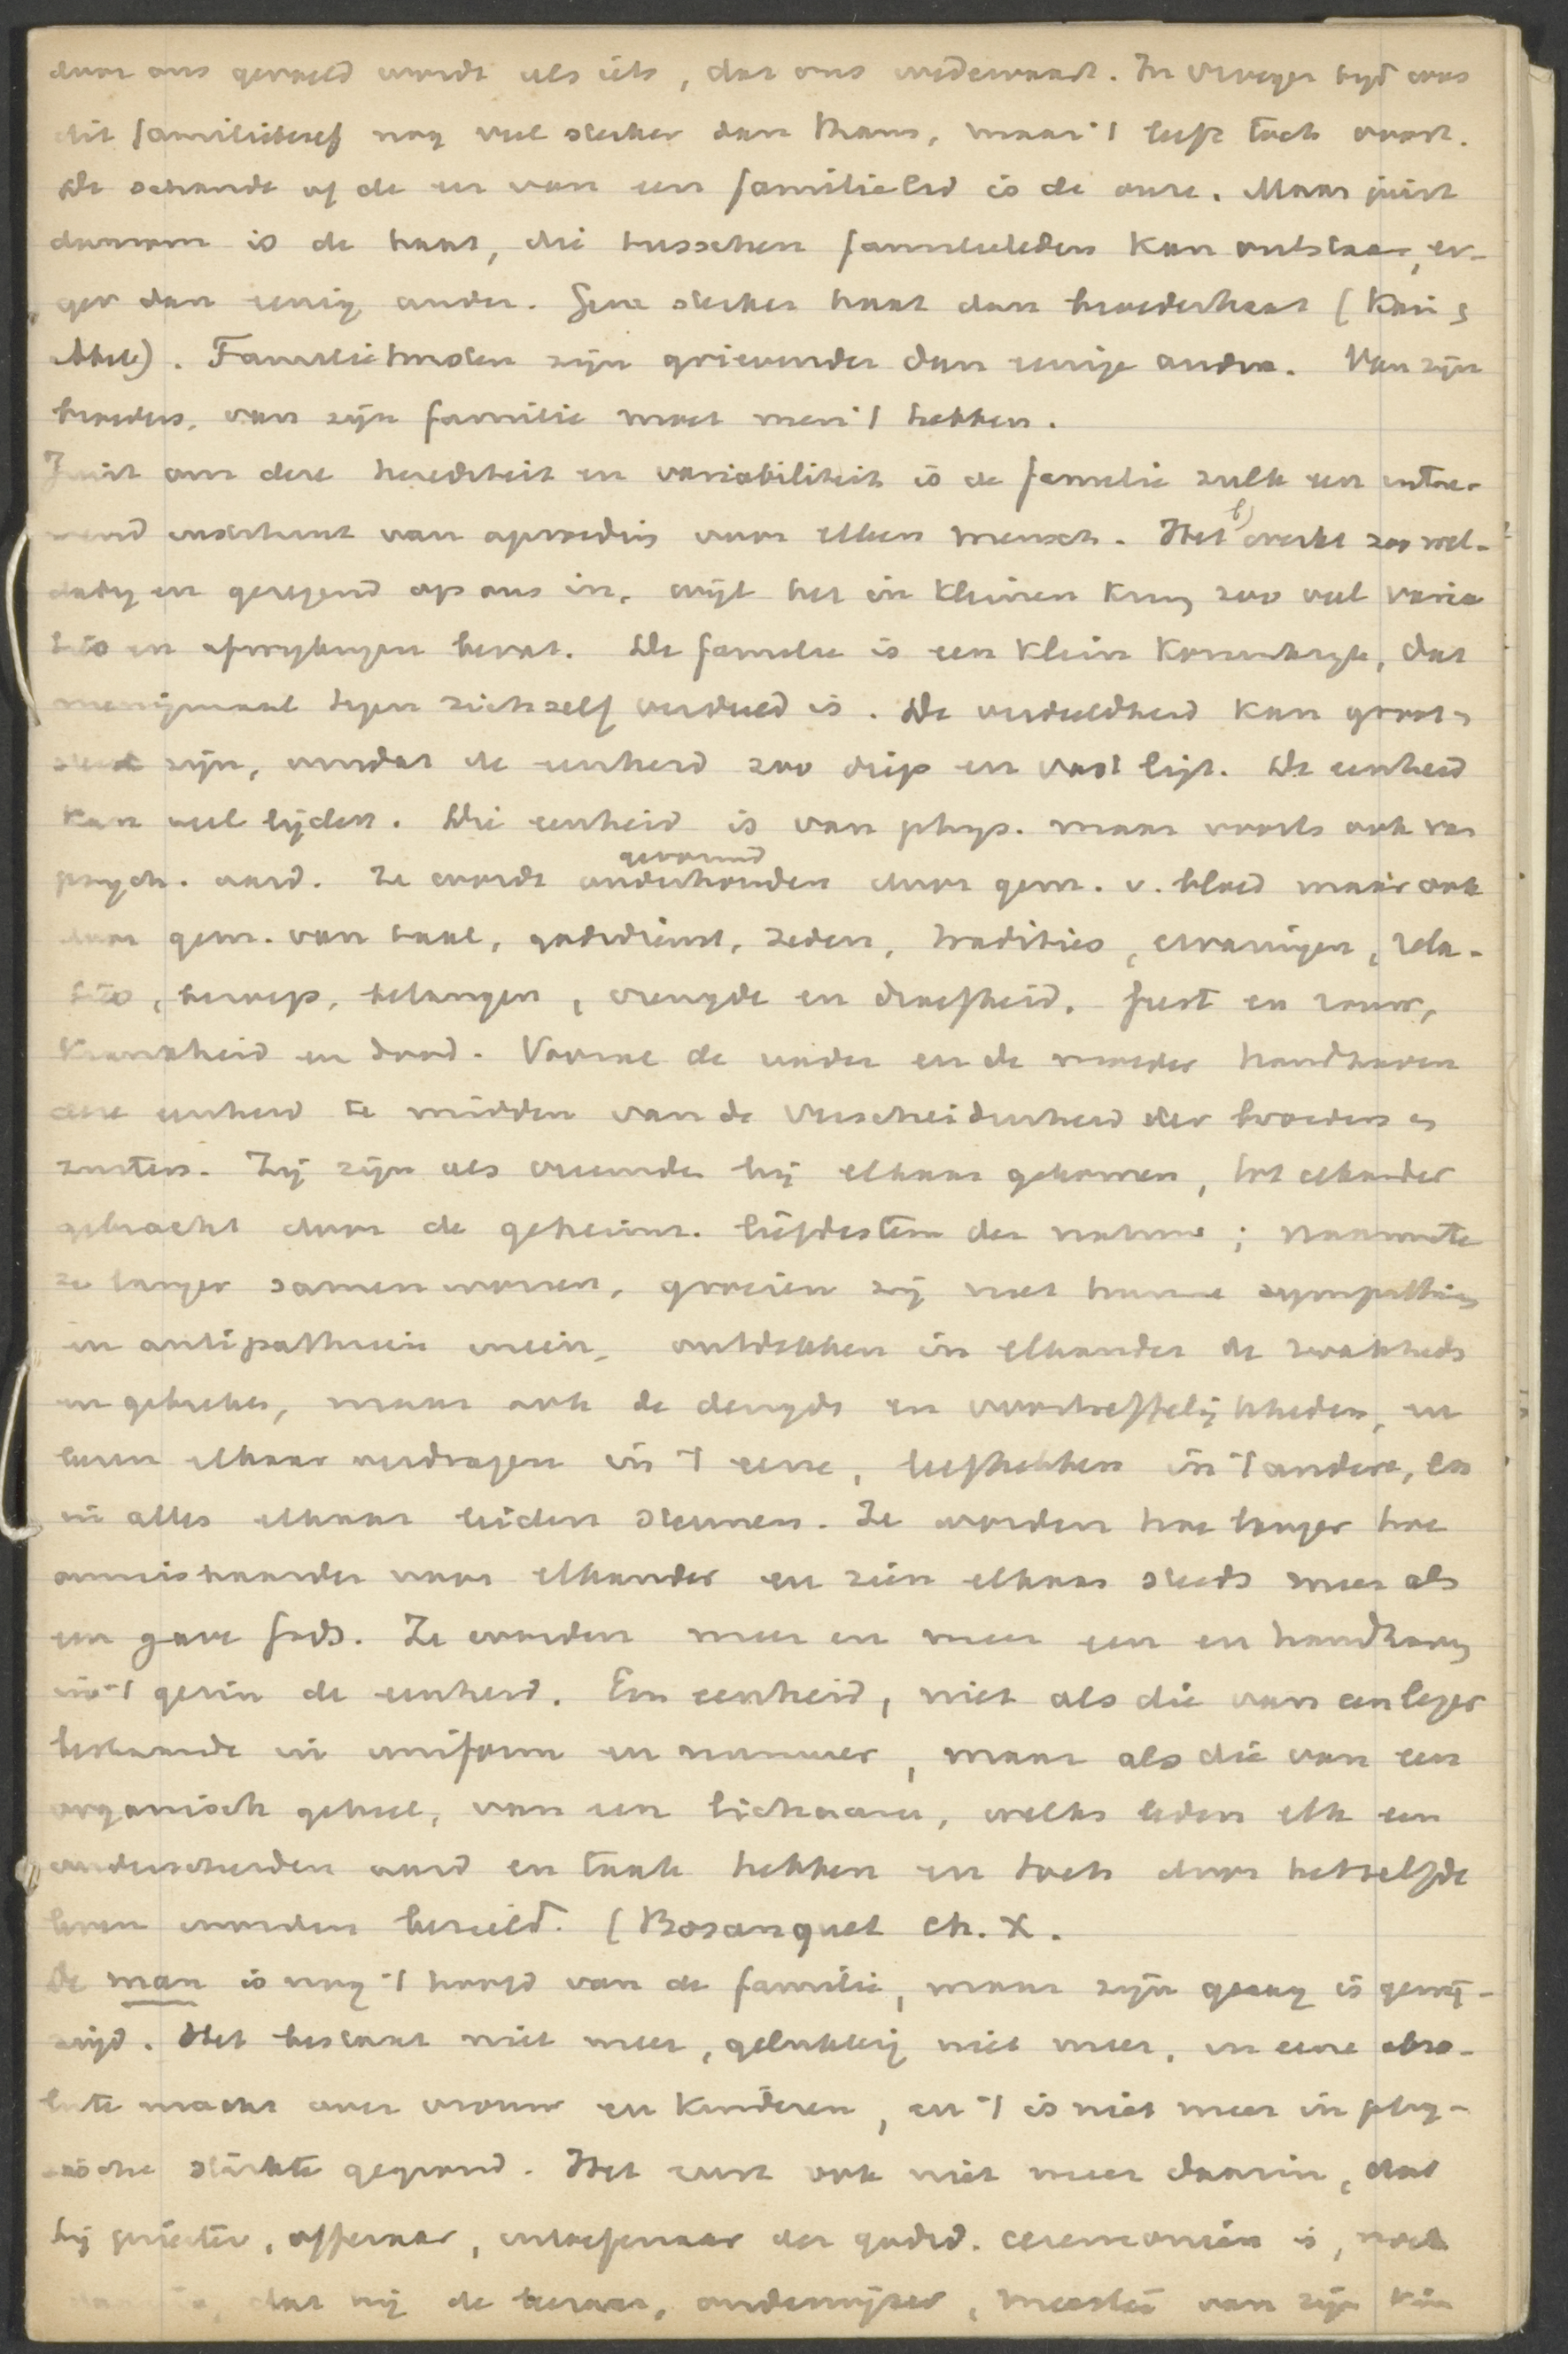 door ons gevoeld wordt als iets, dat ons wedervaart. In vroeger tijd was
dit familiebesef nog veel sterker dan thans, maar 't leeft toch voort.
De schande of de eer van een familielid is de onze. Maar juist
daarom is de haat, die tusschen familieleden kan ontstaan, er-
ger dan eenig ander. Geen sterker haat dan broederhaat (Kain &
Abel). Familietwisten zijn grievender dan eenige andre. Van zijn
broeders, van zijn familie moet men 't hebben.
Juist om deze herediteit en variabiliteit is de familie zulk een uitne-
mend instituut van opvoeding voor elken mensch. Het werkt zoo wel-
dadig en zegenend op ons in, wijl het in kleinen kring zoo veel varia
ties en afwijkingen bevat. De familie is een klein koninkrijk, dat
menigmaal tegen zichzelf verdeeld is. De verdeeldheid kan groot &
sterk zijn, omdat de eenheid zoo diep en vast ligt. De eenheid
kan veel lijden. Die eenheid is van phys. maar voorts ook van
psych. aard. Ze wordt onderhouden door gem. v. bloed maar ook
gevormd
door gem. van taal, godsdienst, zeden, tradities, ervaringen, rela-
ties, beroep, belangen, vreugde en droefheid, feest en rouw,
krankheid en dood. Vooral de vader en de moeder handhaven
deze eenheid te midden van de verscheidenheid der broeders en
zusters. Zij zijn als vreemden bij elkaar gekomen, tot elkander
gebracht door de geheimz. liefdestem der natuur; naarmate
ze langer samen wonen, groeien zij met hunne sympathieën
en antipathieën ineen, ontdekken in elkander de zwakheden
en gebreken, maar ook de deugden en voortreffelijkheden, en
leeren elkaar verdragen in 't eene, liefhebben in 't andere, en
in alles elkaar leiden steunen. Ze worden hoe langer hoe
onmisbaarder voor elkander en zien elkaar steeds meer als
een gave Gods. Ze worden meer en meer een en handhaven
in 't gezin de eenheid. Een eenheid, niet als die van een leger
bestaande in uniform en nummer, maar als die van een
organisch geheel, van een lichaam, welks leden elk een
onderscheiden aard en taak hebben en toch door hetzelfde
leven worden bezield. (Bosanquet ch. X.
De man is nog 't hoofd van de familie, maar zijn gezag is gewij-
zigd. Het bestaat niet meer, gelukkig niet meer, in eene abso-
lute macht over vrouw en kinderen, en 't is niet meer in phy-
sische sterkte gegrond. Het rust ook niet meer daarin, dat
hij priester, offeraar, uitoefenaar der godsd. ceremoniën is, noch
daarin, dat hij de leeraar, onderwijzer, meester van zijn kin